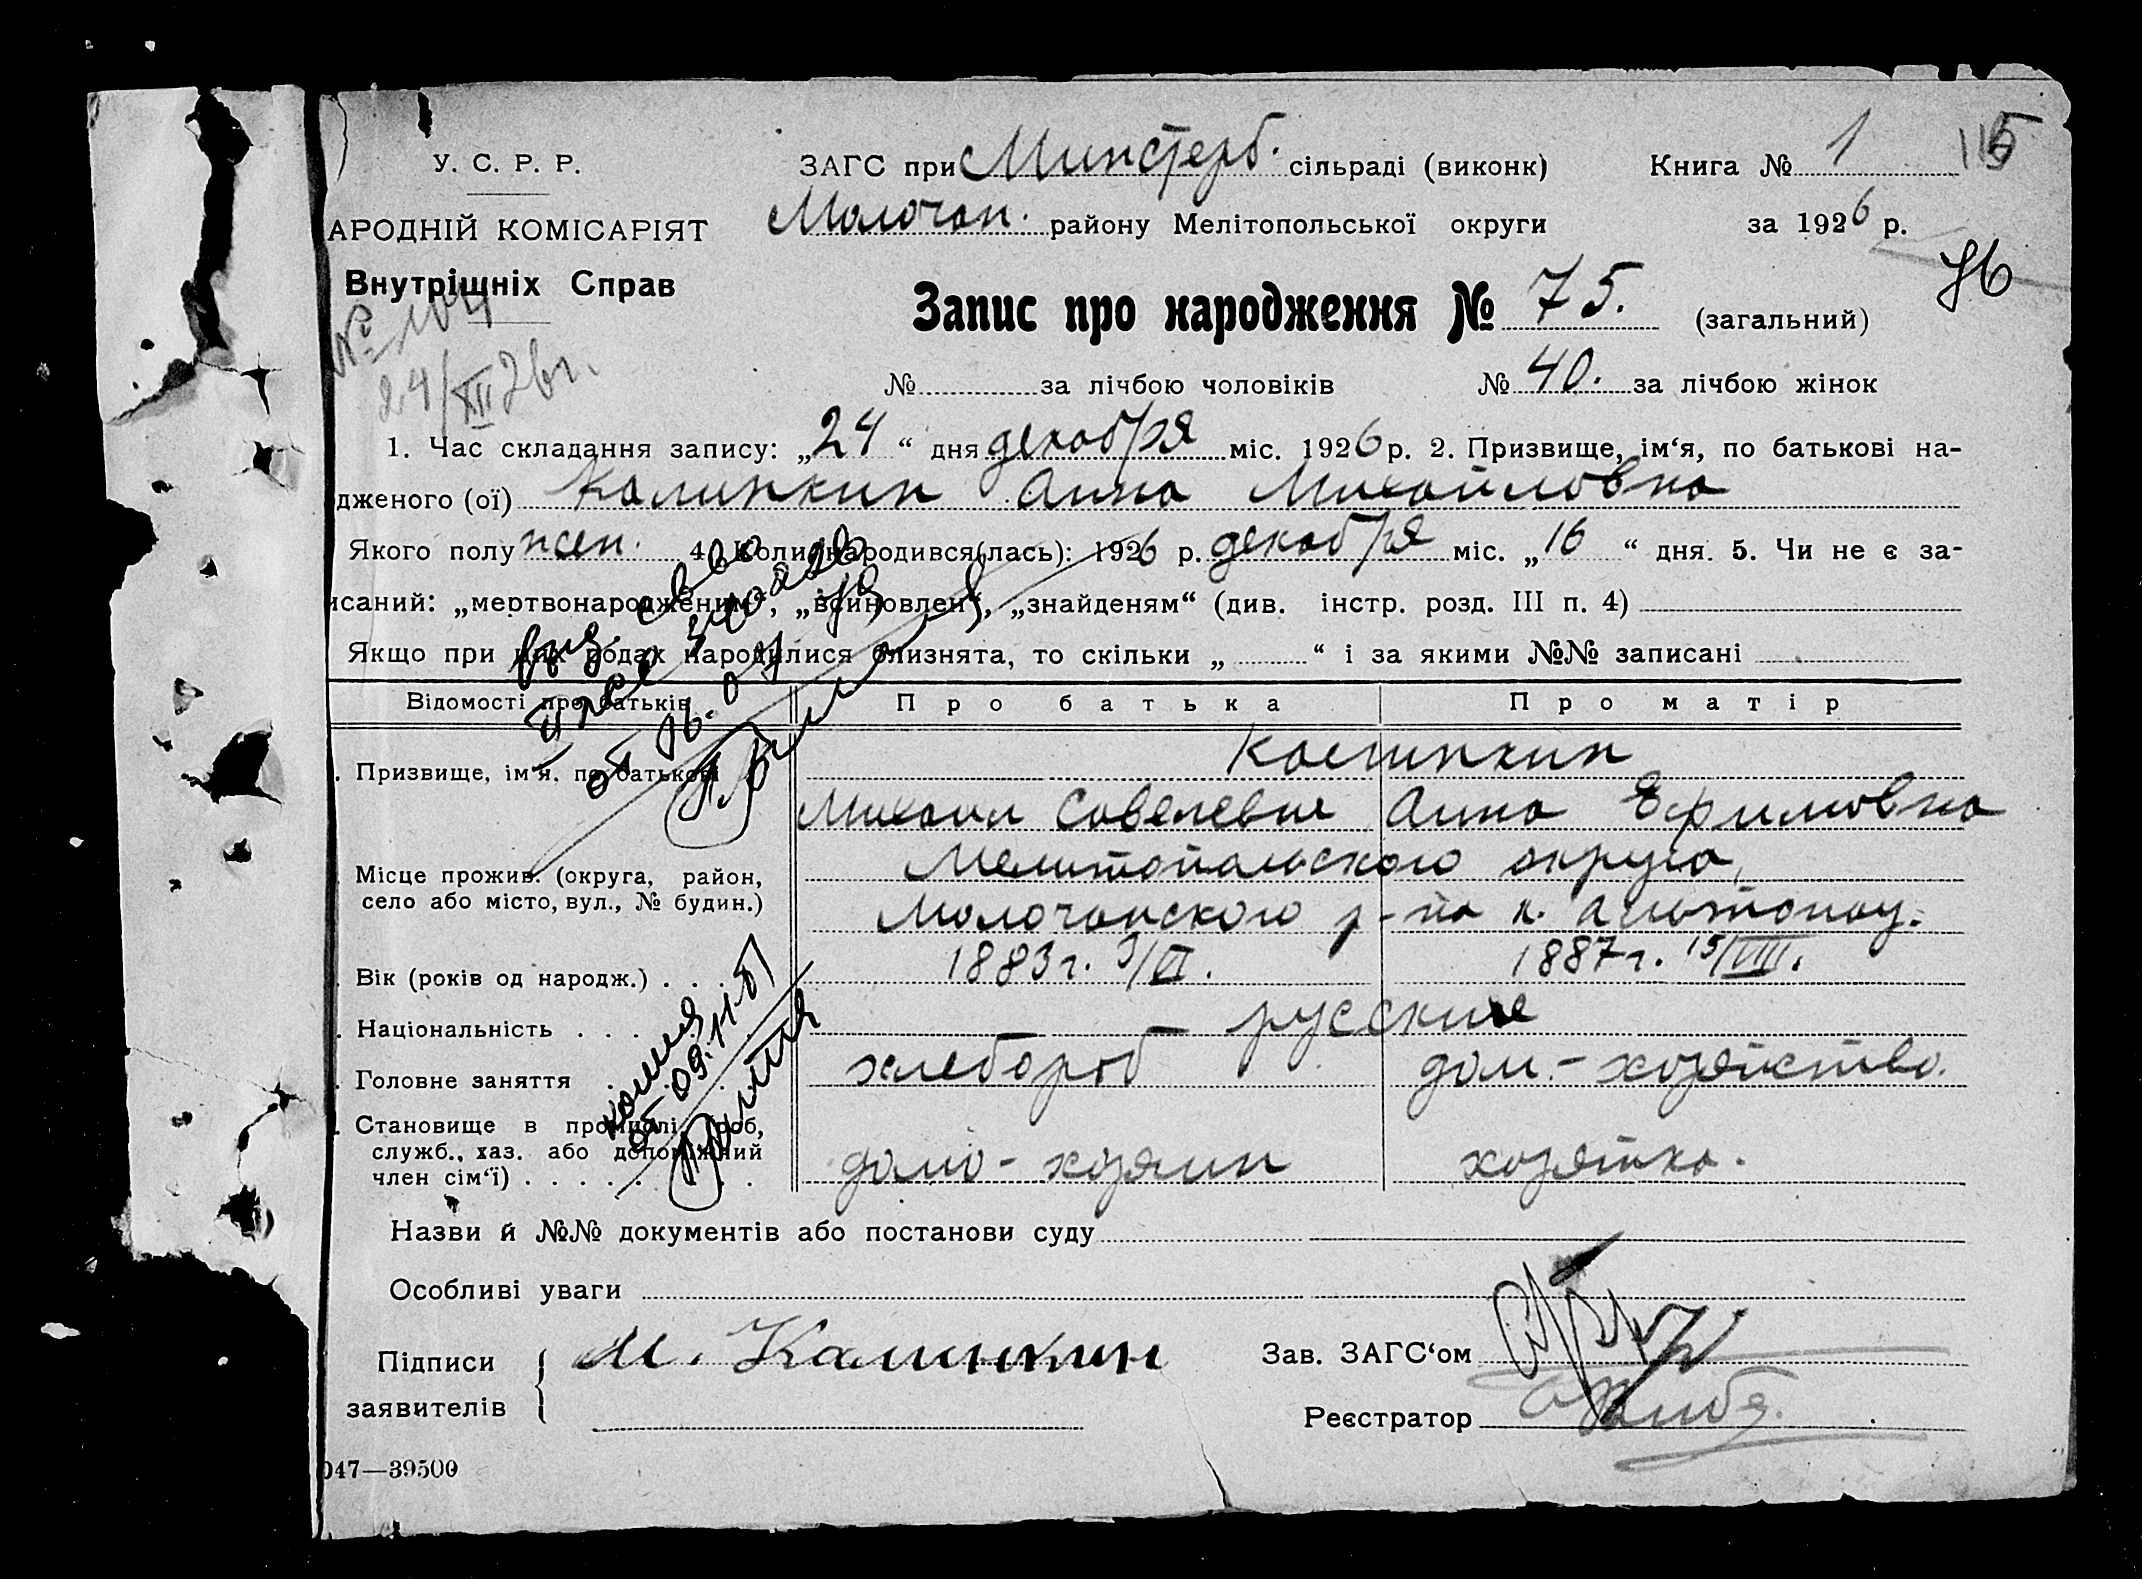 У. С. Р. Р.
ЗАГС при Минстерб. сільраді (виконк)
Книга № 1
АРОДНІЙ КОМІСАРІЯТ
Молочан. району Мелітопольської округи
за 1926 р.
Внутрішніх Справ
76
№ 104
24/XII 26 г.
Запис про народження № 75. (загальний)
№ за лічбою чоловіків
№ 40. за лічбою жінок
1. Час складання запису: „24“ дня декабря міс. 1926 р. 2. Призвище, ім‘я, по батькові на-
дженого (ої) Калинкин Анна Михайловна
Якого полу жен. 4. Коли народився(лась): 1926 р. декабря міс. „16“ дня. 5. Чи не є за-
исаний: „мертвонародженим“, „всиновлен“, „знайденям“ (див. інстр. розд. III п. 4)
Якщо при цих родах народилися близнята, то скільки „ “ і за якими №№ записані
Відомості про батьків
Про батька
Про матір
Призвище, ім‘я, по батькові
Калинкин
Михаил Савелевич
Анна Ефимовна
Місце прожив. (округа, район,
село або місто, вул., № будин.)
Мелитопольского округа,
Молочанского р-на к.
Вік (років од народж.) . . .
1883 г. 3/VI.
1887 г. 15/VIII.
Національність . . .
русские
Головне заняття
хлебороб
дом.-хозяйство.
Становище в промислі (роб,
служб., хаз. або допоміжний
член сім‘ї) . . . . . . . .
домо-хозяин
хозяйка.
копия
от 09.11.81
Назви й №№ документів або постанови суду
Особливі уваги
Підписи
заявителів
М. Калинкин
Зав. ЗАГС‘ом
Реєстратор
047—39500